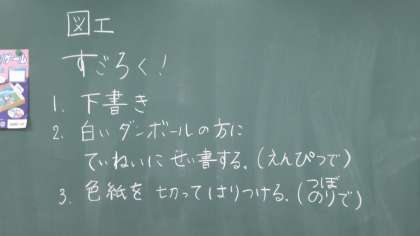 図工
すごろく!
1. 下書き
2. 白いダンボールの方に
ていねいにせい書する。(えんぴつで)
3. 色紙を切ってはりつける。(つぼのりで)